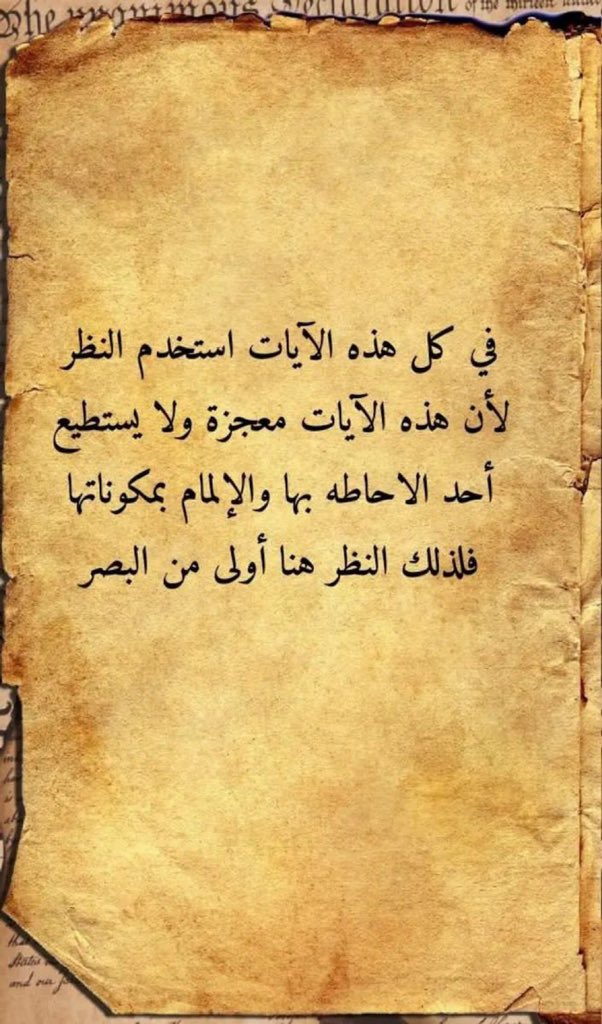 The unanimous Declaration of the thirteen united
في كل هذه الآيات استخدم النظر
لأن هذه الآيات معجزة ولا يستطيع
أحد الاحاطه بها والإلمام بمكوناتها
فلذلك النظر هنا أولى من البصر
that
States
and our